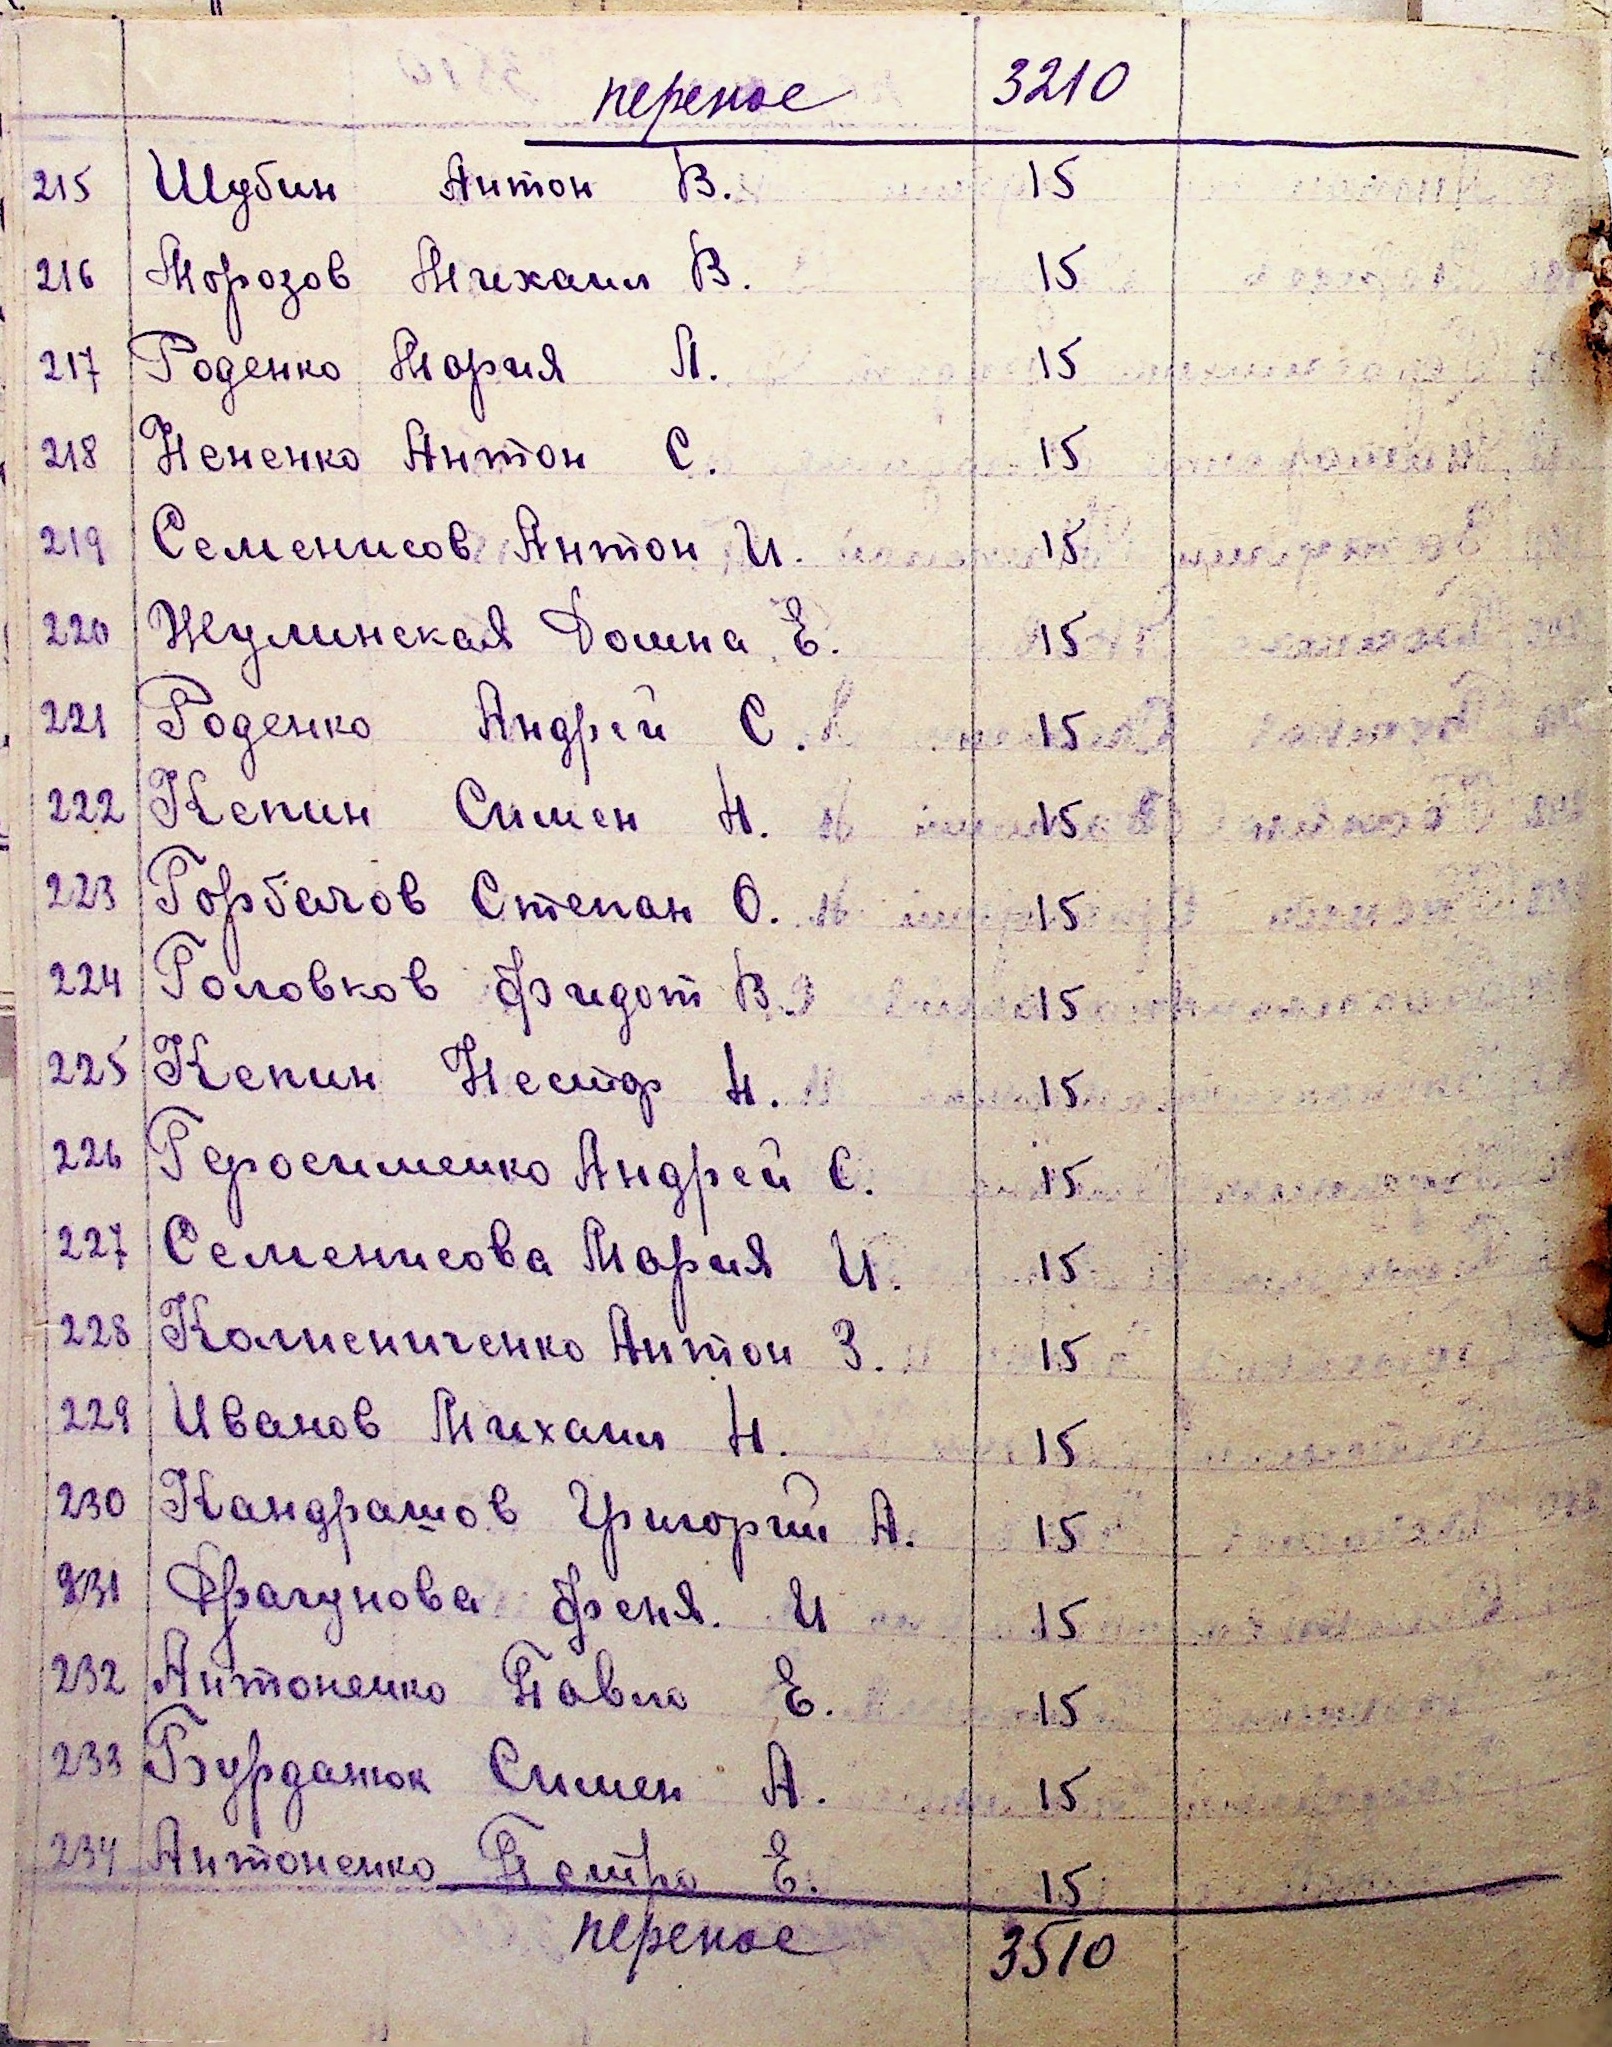 перенос 3210
215 Шубин Антон В. 15
216 Морозов Михаил В. 15
217 Роденко Мария Л. 15
218 Нененко Антон С. 15
219 Семенисов Антон И. 15
220 Жулинская Домна Е. 15
221 Роденко Андрей С. 15
222 Кепин Симен Н. 15
223 Горбачов Степан О. 15
224 Головков Фидот В. 15
225 Кепин Нестор Н. 15
226 Геросименко Андрей С. 15
227 Семенисова Мария И. 15
228 Колнениченко Антон З. 15
229 Иванов Михаил Н. 15
230 Кандрашов Григорий А. 15
231 Драгунова Феня. И 15
232 Антоненко Павло Е. 15
233 Бурданюк Симен А. 15
234 Антоненко Петро Е. 15
перенос 3510